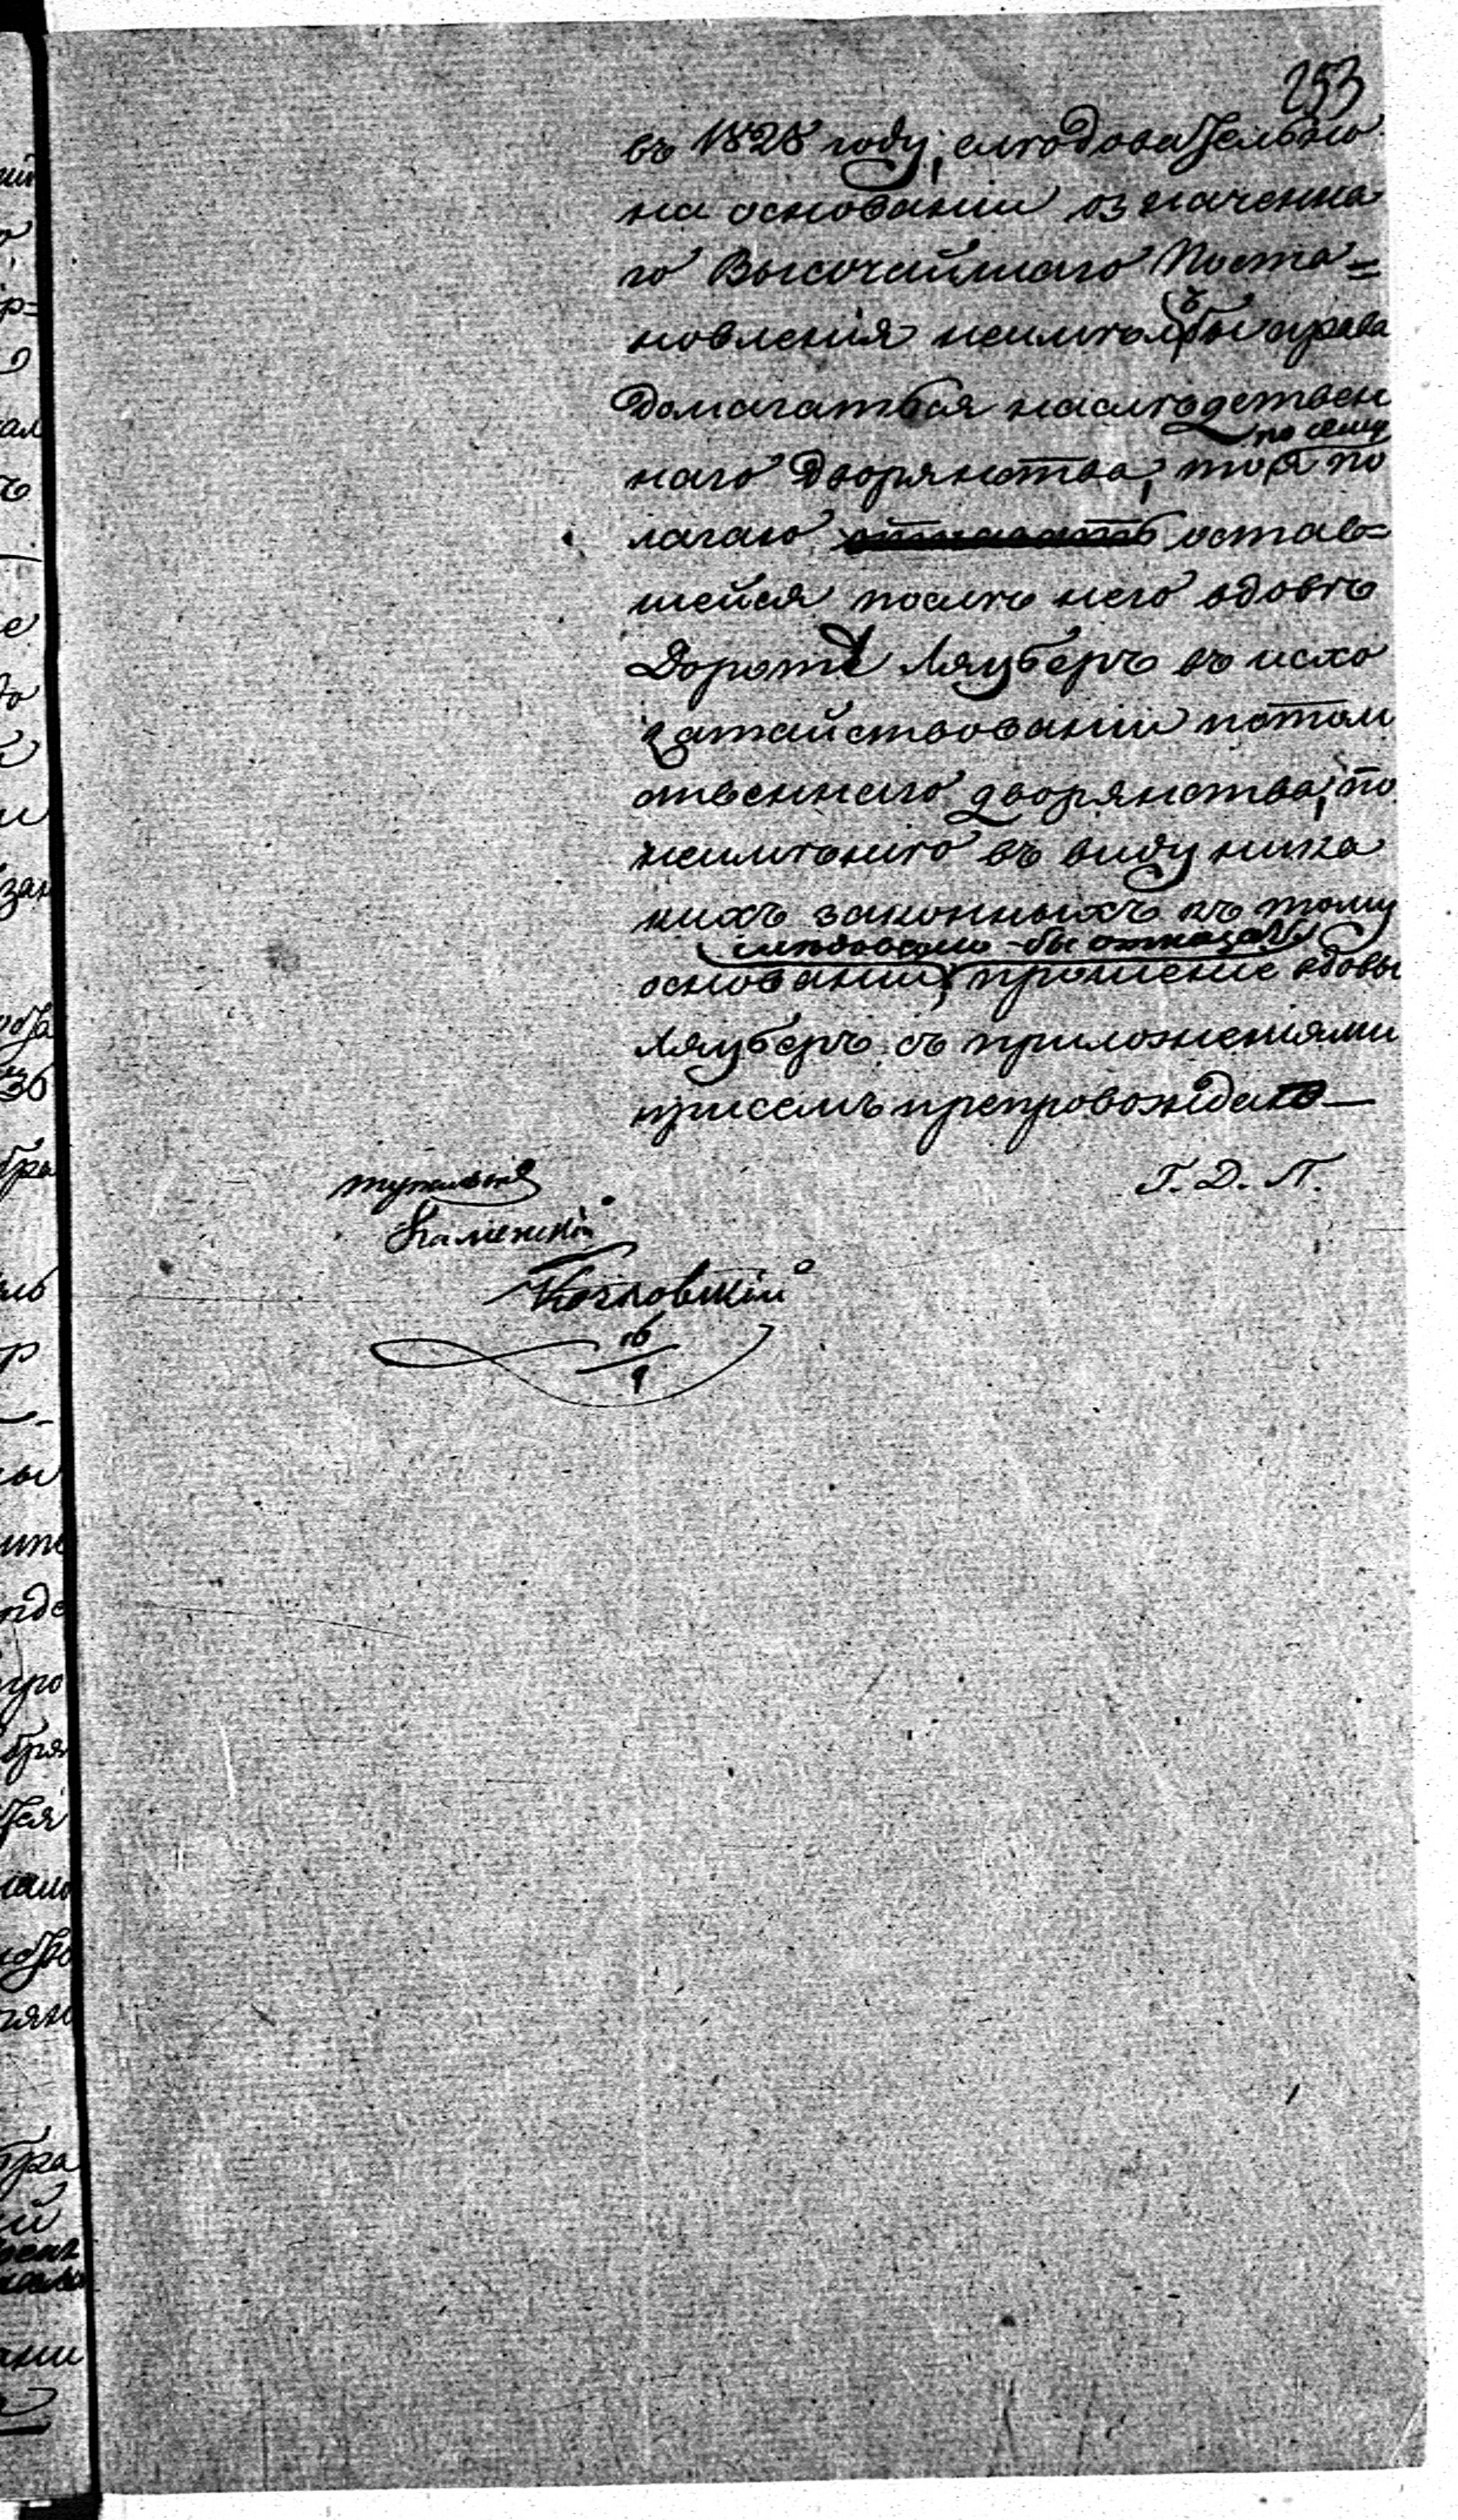 253
въ 1828 году, слѣдовательно
на основаніи означенна
го Высочайшаго Поста=
новленія неимѣлъ бы права
Домагаться наслѣдствен
по сему
наго Дворянства, то я по
лагаю отказать остав=
шейся послѣ него вдовѣ
Доротѣ Ляуберъ въ исхо
датайствованіи потом
ственнаго дворянства, по
неимѣнію въ виду ника
кихъ законныхъ къ тому
слѣдовало-бы отказать
основаній, прошеніе вдовы
Ляуберъ съ приложеніями
присемъ препровождаю—
Г. Д. П.
Каменскій
Козловскій
16
9